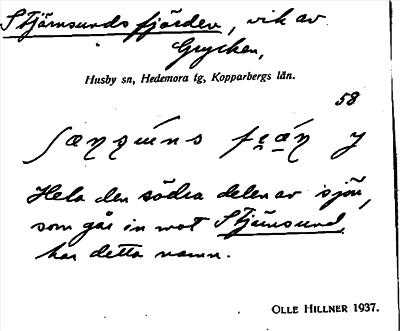 Stjärnsunds fjärden, vik av
Grycken,
Husby sn, Hedemora tg, Kopparbergs län.
58
Hela den södra delen av sjön,
som går in mot Stjärnsund,
har detta namn.
OLLE HILLNER 1937.